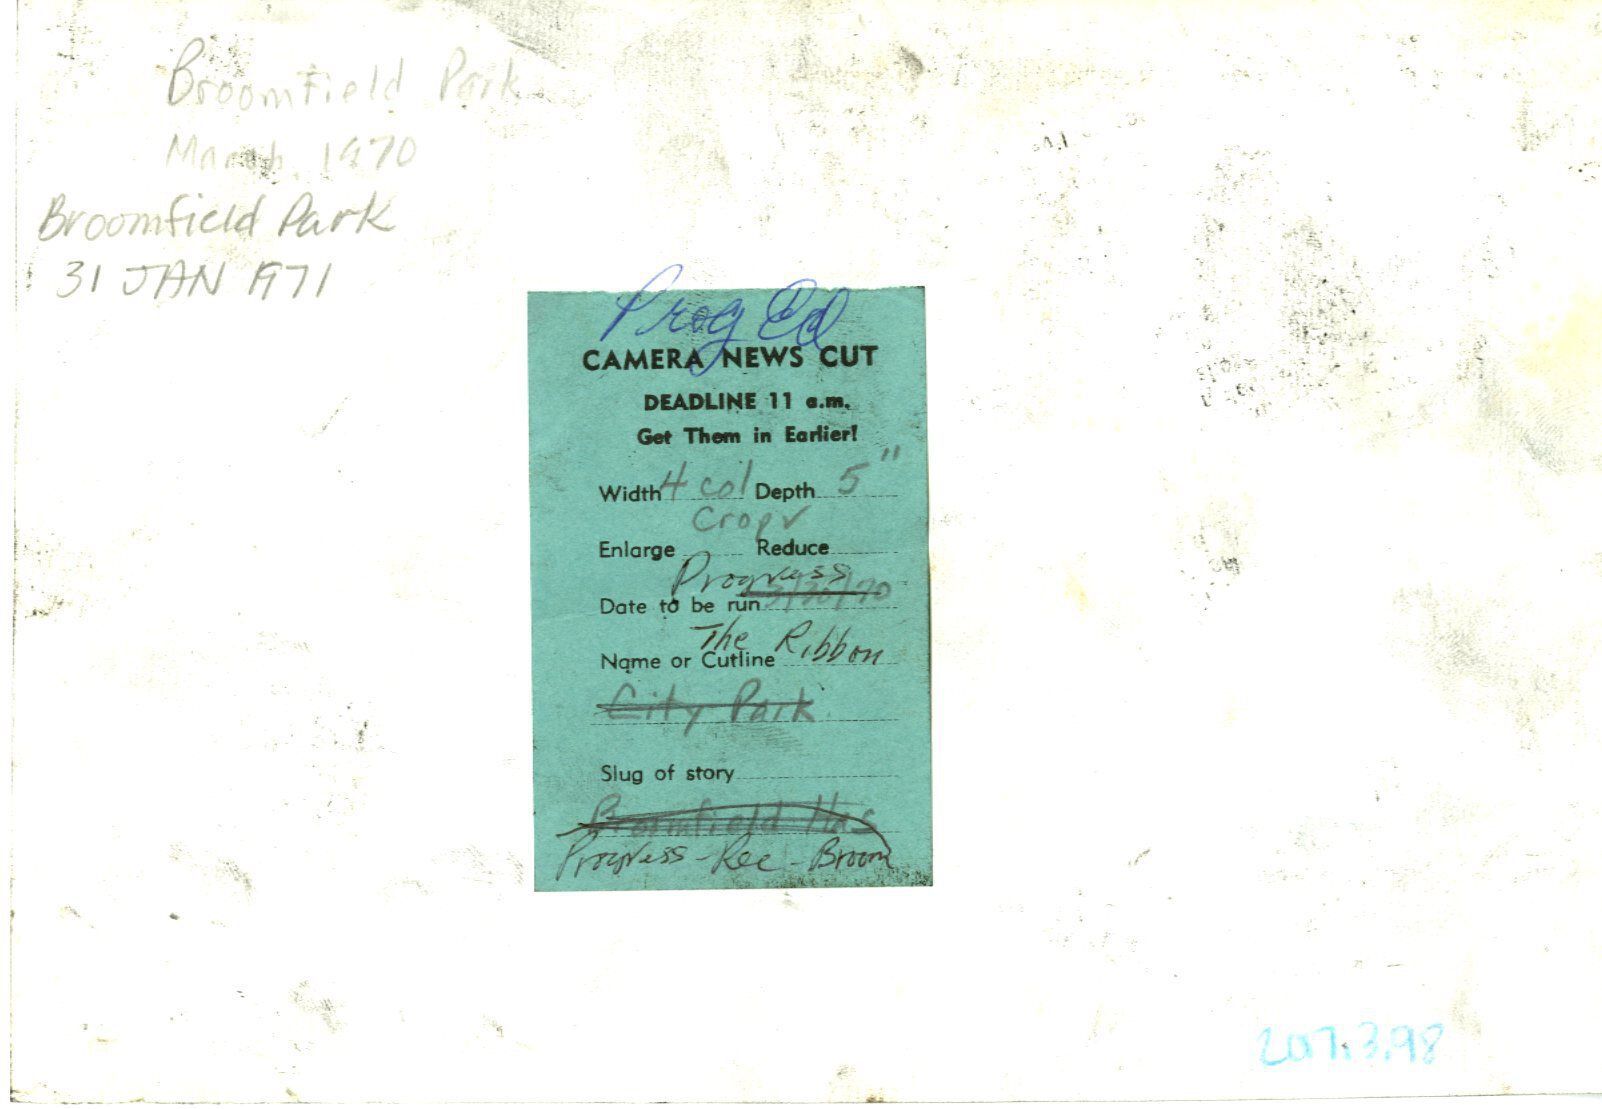 Broomfield Park
March 1970
Broomfield Park
31 JAN 1971
Prog Ed
CAMERA NEWS CUT
DEADLINE 11 a.m.
Get Them in Earlier!
Width 4 col Depth 5"
Crop ✓
Enlarge Reduce
Progress
Date to be run 3/30/70
The Ribbon
Name or Cutline
City Park
Slug of story
Broomfield Has
Progress - Rec - Broom
2017.3.98